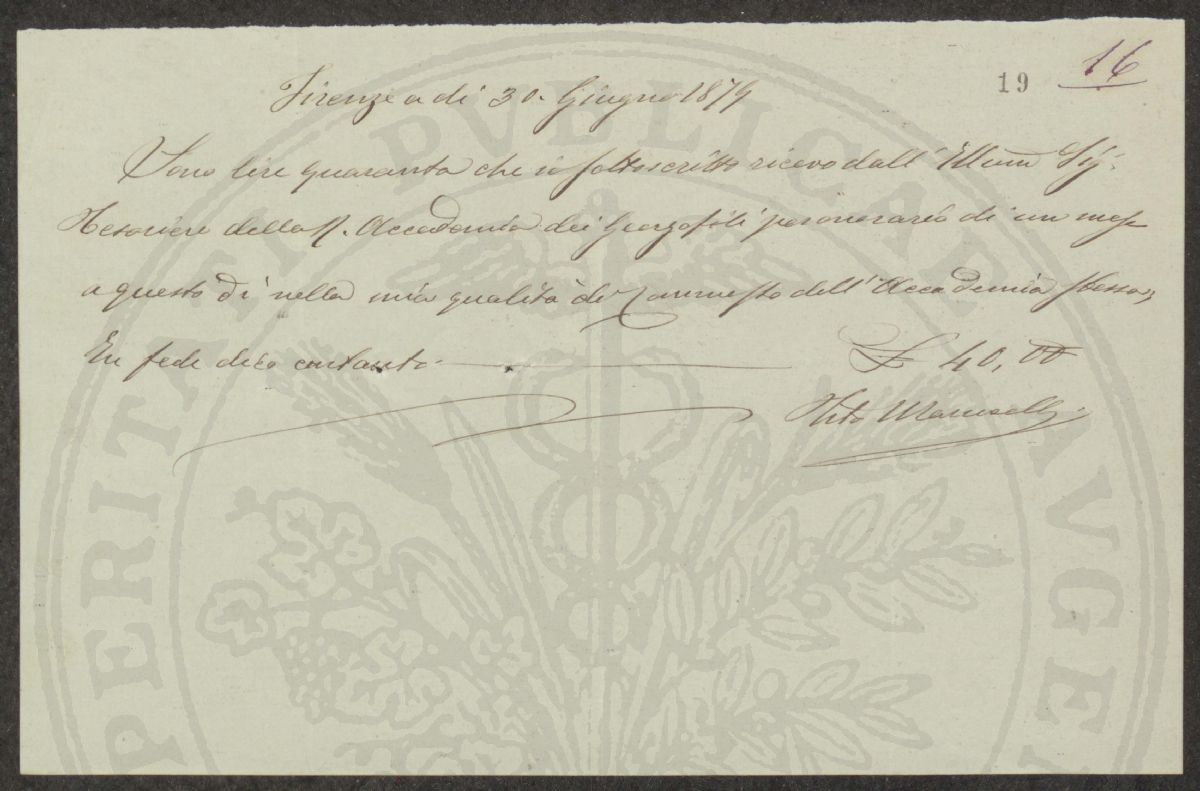 19 16
Firenze a di 30. Giugno 1879
Sono lire quaranta che io sottoscritto ricevo dall' Illmo Sig.
Tesoriere della R. Accademia dei Georgofili per onorario di un mese
a questo dì nella mia qualità di Commesso dell' Accademia stessa,
In fede dico contanti £ 40,00
Vito
PROSPERITATI PVBLICAE AVGE